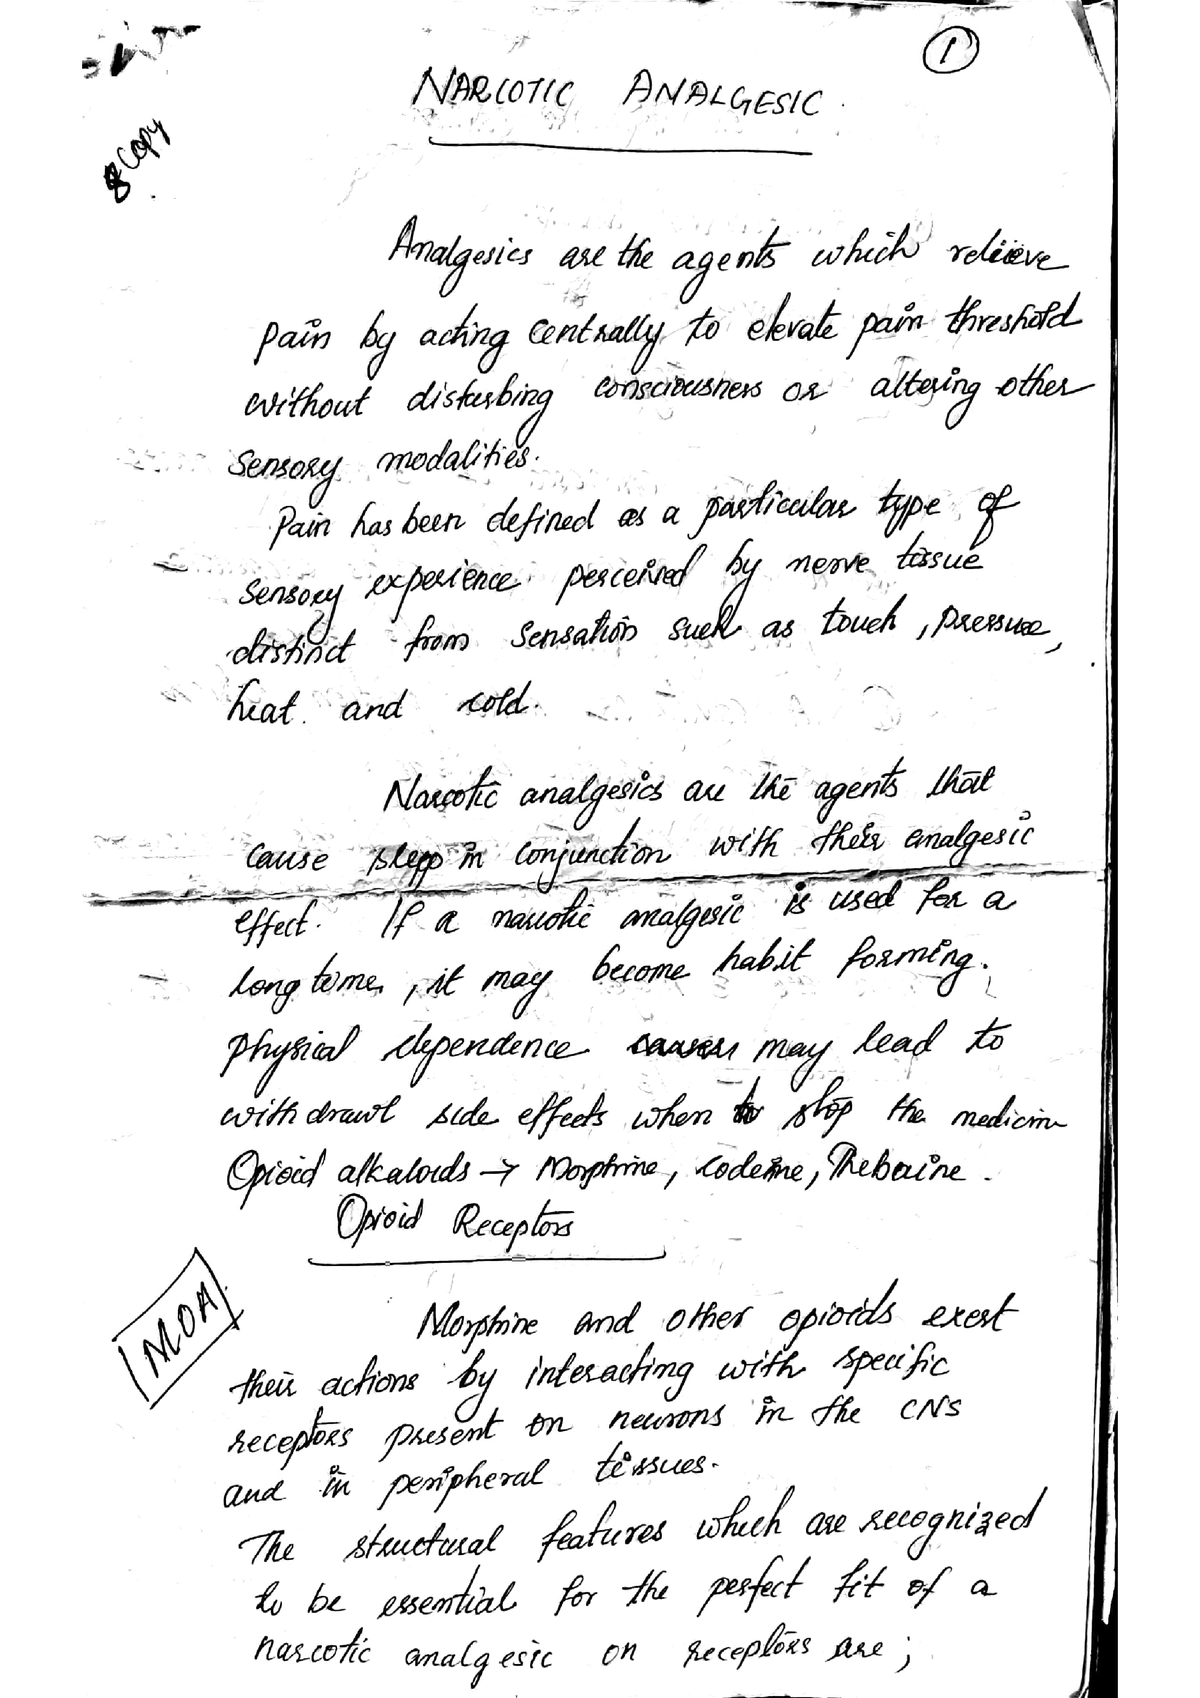 1
NARCOTIC ANALGESIC.
Copy
Analgesics are the agents which relieve
pain by acting centrally to elevate pain threshold
without disturbing consciousness or altering other
sensory modalities.
Pain has been defined as a particular type of
sensory experience perceived by nerve tissue
distinct from sensation such as touch, pressure,
heat and cold.
Narcotic analgesics are the agents that
cause sleep in conjunction with their analgesic
effect. If a narcotic analgesic is used for a
long time, it may become habit forming.
physical dependence causes may lead to
withdrawl side effects when to stop the medicin
Opioid alkaloids → Morphine, codeine, Thebaine.
Opioid Receptors
MOA
Morphine and other opioids exert
their actions by interacting with specific
receptors present on neurons in the CNS
and in peripheral tissues.
The structural features which are recognized
to be essential for the perfect fit of a
narcotic analgesic on receptors are;